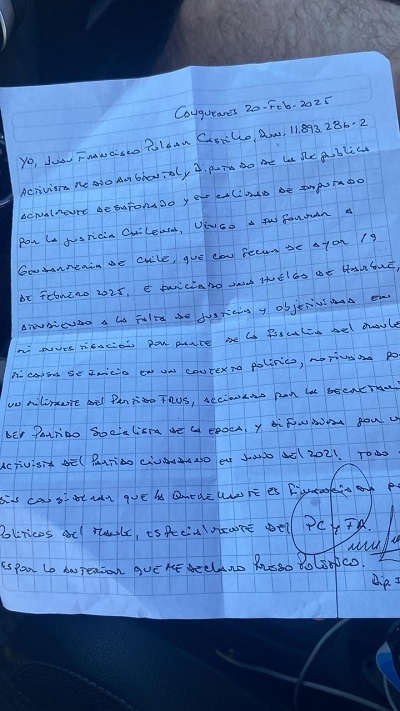 Cauquenes 20-Feb-2025
Yo, Juan Francisco Pulgar Castillo, Run. 11.893.286-2
Activista Medio Ambiental, y Diputado de la Republica
actualmente desaforado y en calidad de imputado
por la justicia Chilena, vengo a informar a
Gendarmeria de Chile, que con fecha de ayor 19
de Febrero 2025, e iniciado una huelga de Hambre,
atendiendo a la falta de justicia y objetividad en
mi investigación por parte de la Fiscalia del Maule
mi causa se inicio en un contexto político, motivada po
un militante del Partido FRVS, accionado por la secretari
del Partido Socialista de la epoca, y difundida por un
activista del Partido Ciudadano en Junio del 2021. Todo
sin considerar que la querellante es financiada po
Politicos del Maule, especialmente del PC y FA.
es por lo anterior que me declaro Preso Político.
Dip. J